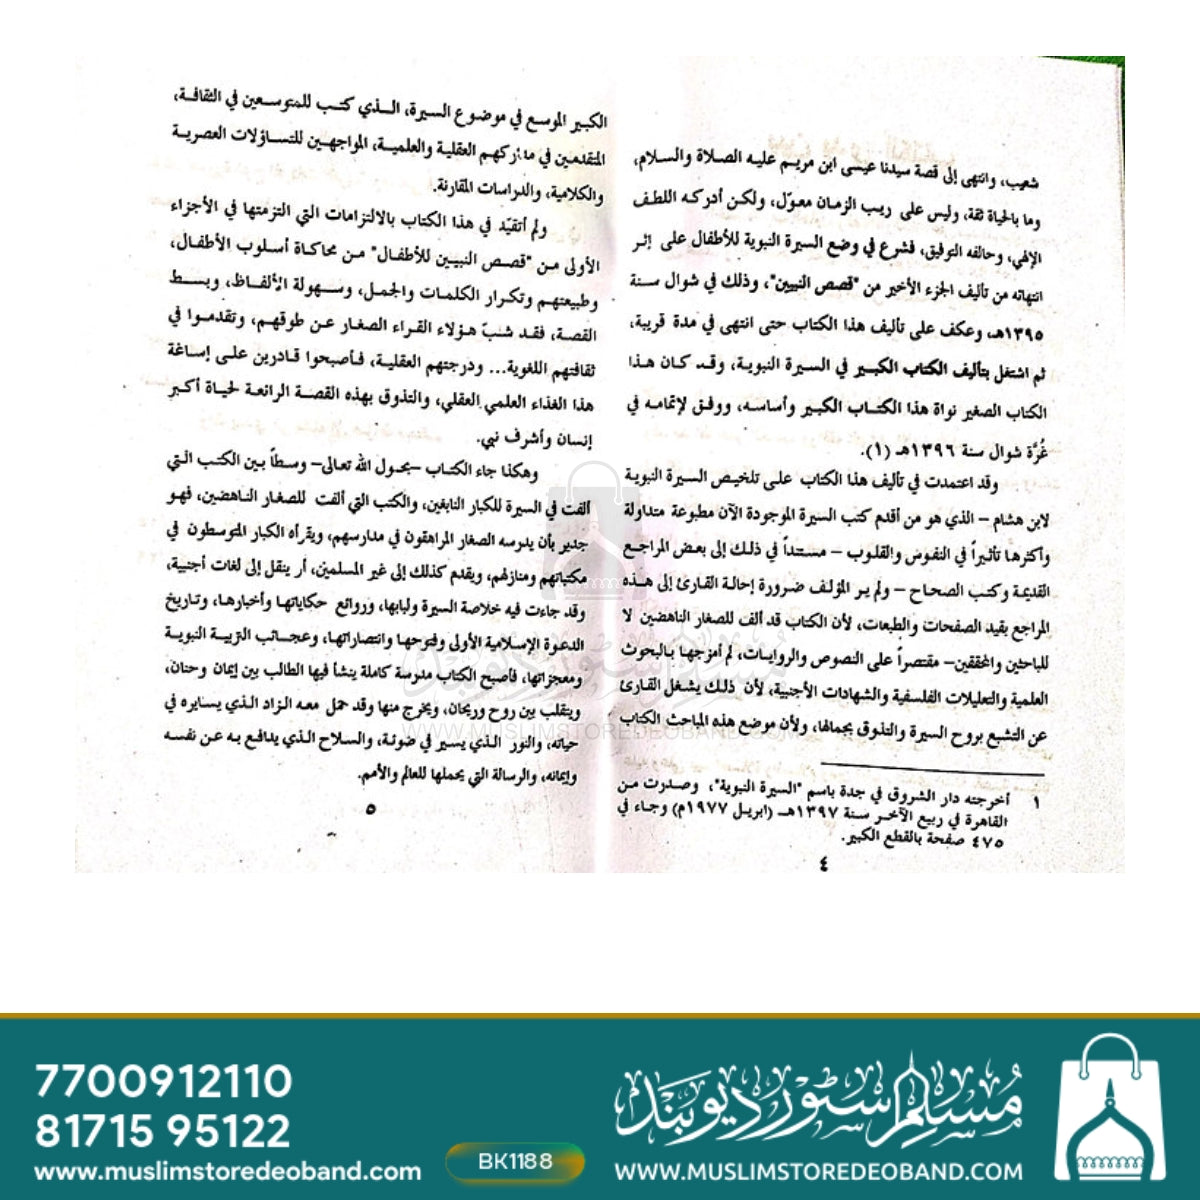 شعيب، وانتهى إلى قصة سيدنا عيسى ابن مريم عليه الصلاة والسلام،
وما بالحياة ثقة، وليس على ريب الزمان معوّل، ولكن أدركه اللطف
الإلهي، وحالفه التوفيق، فشرع في وضع السيرة النبوية للأطفال على إثر
انتهائه من تأليف الجزء الأخير من "قصص النبيين"، وذلك في شوال سنة
١٣٩٥هـ، وعكف على تأليف هذا الكتاب حتى انتهى في مدة قريبة،
ثم اشتغل بتأليف الكتاب الكبير في السيرة النبوية، وقد كان هذا
الكتاب الصغير نواة هذا الكتاب الكبير وأساسه، ووفق لإتمامه في
غُرَّة شوال سنة ١٣٩٦هـ (١).
وقد اعتمدت في تأليف هذا الكتاب على تلخيص السيرة النبوية
لابن هشام – الذي هو من أقدم كتب السيرة الموجودة الآن مطبوعة متداولة
وأكثرها تأثيراً في النفوس والقلوب – مستنداً في ذلك إلى بعض المراجع
القديمة وكتب الصحاح – ولم ير المؤلف ضرورة إحالة القارئ إلى هذه
المراجع بقيد الصفحات والطبعات، لأن الكتاب قد ألف للصغار الناهضين لا
للباحثين والمحققين– مقتصراً على النصوص والروايات، لم أمزجها بالبحوث
العلمية والتعليلات الفلسفية والشهادات الأجنبية، لأن ذلك يشغل القارئ
عن التشبع بروح السيرة والتذوق بجمالها، ولأن موضع هذه المباحث الكتاب
١ أخرجته دار الشروق في جدة باسم "السيرة النبوية"، وصدرت من
القاهرة في ربيع الآخر سنة ١٣٩٧هـ (ابريل ١٩٧٧م) وجاء في
٤٧٥ صفحة بالقطع الكبير.
٤
الكبير الموسع في موضوع السيرة، الذي كتب للمتوسعين في الثقافة،
المتقدمين في مداركهم العقلية والعلمية، المواجهين للتساؤلات العصرية
والكلامية، والدراسات المقارنة.
ولم أتقيّد في هذا الكتاب بالالتزامات التي التزمتها في الأجزاء
الأولى من "قصص النبيين للأطفال" من محاكاة أسلوب الأطفال،
وطبيعتهم وتكرار الكلمات والجمل، وسهولة الألفاظ، وبسط
القصة، فقد شبّ هؤلاء القراء الصغار عن طوقهم، وتقدموا في
ثقافتهم اللغوية... ودرجتهم العقلية، فأصبحوا قادرين على إساغة
هذا الغذاء العلمي العقلي، والتذوق بهذه القصة الرائعة لحياة أكبر
إنسان وأشرف نبي.
وهكذا جاء الكتاب –بحول الله تعالى– وسطاً بين الكتب التي
ألفت في السيرة للكبار النابغين، والكتب التي ألفت للصغار الناهضين، فهو
جدير بأن يدرسه الصغار المراهقون في مدارسهم، ويقرأه الكبار المتوسطون في
مكتباتهم ومنازلهم، ويقدم كذلك إلى غير المسلمين، أر ينقل إلى لغات أجنبية،
وقد جاءت فيه خلاصة السيرة ولبابها، وروائع حكاياتها وأخبارها، وتاريخ
الدعوة الإسلامية الأولى وفتوحها وانتصاراتها، وعجائب التربية النبوية
ومعجزاتها، فأصبح الكتاب مدرسة كاملة ينشأ فيها الطالب بين إيمان وحنان،
ويتقلب بين روح وريحان، ويخرج منها وقد حمل معه الزاد الذي يسايره في
حياته، والنور الذي يسير في ضوئه، والسلاح الذي يدافع به عن نفسه
وإيمانه، والرسالة التي يحملها للعالم والأمم.
٥
مسلم سٹور دیوبند
WWW.MUSLIMSTOREDEOBAND.COM
7700912110
81715 95122
www.muslimstoredeoband.com
BK1188
مسلم سٹور دیوبند
WWW.MUSLIMSTOREDEOBAND.COM